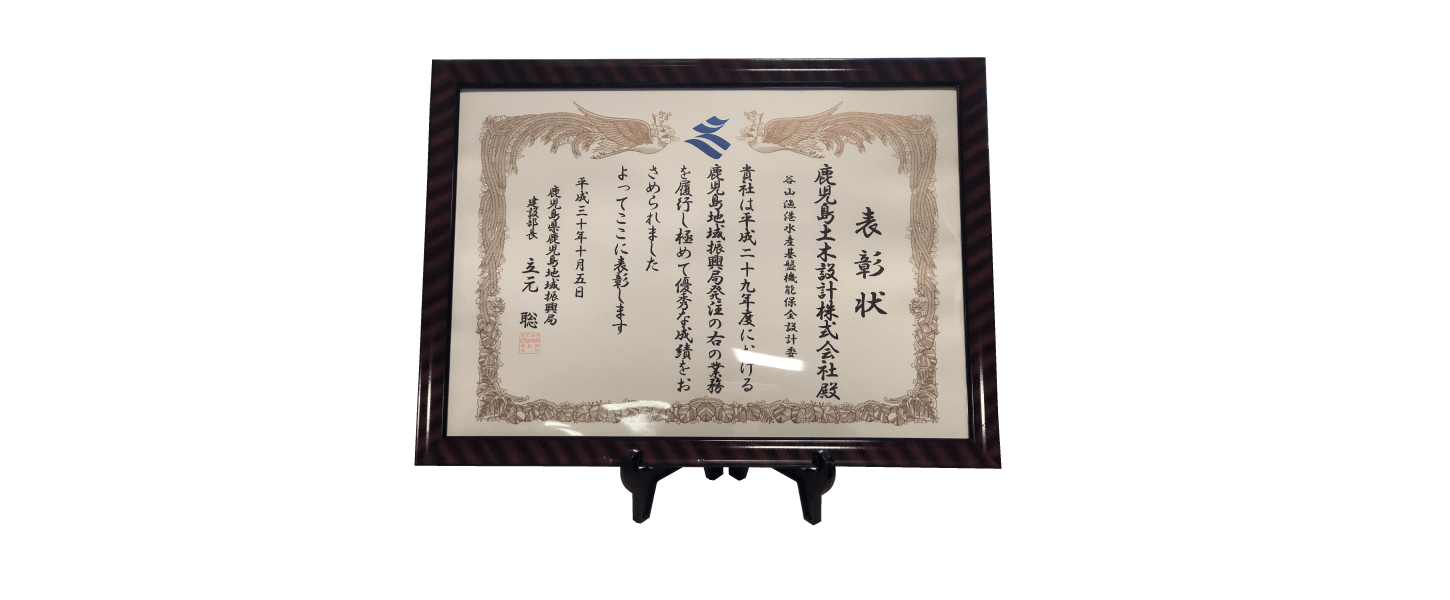 表彰状
鹿児島土木設計株式会社殿
谷山漁港水産基盤機能保全設計委
貴社は平成二十九年度における
鹿児島地域振興局発注の右の業務
を履行し極めて優秀な成績をお
さめられました
よってここに表彰します
平成三十年十月五日
鹿児島県鹿児島地域振興局
建設部長 立元 聡